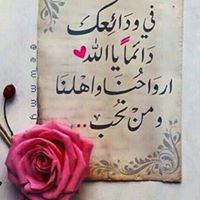 في ودائعك
دائماً يا الله
ارواحُنَا واهلنَا
ومنْ نحُب ..